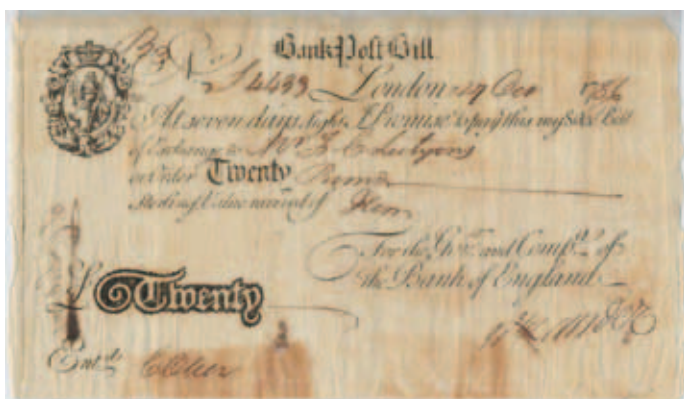 Bank Post Bill
No. S4433 London 29 Oct 1786
At seven days sight I Promise to pay this my Sola Bill
of Exchange to Mr.
or Order Twenty Pounds
Sterling Value received of
For the Govr. and Compa. of
the Bank of England
£ Twenty
Entd.